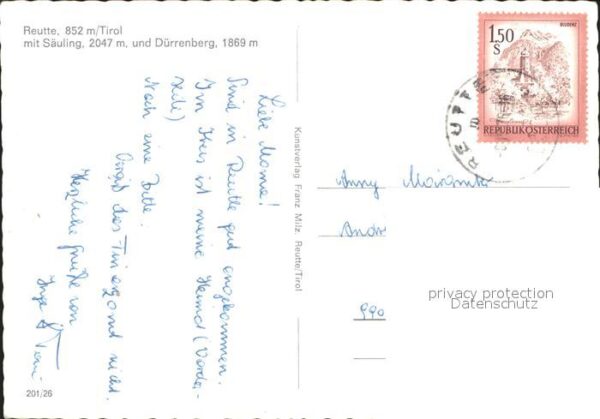 Reutte, 852 m/Tirol
mit Säuling, 2047 m, und Dürrenberg, 1869 m
Liebe Mama!
Sind in Reutte gut angekommen.
Im Kreis ist meine Heimat (Vorder-
seite)
Noch eine Bitte.
das nicht.
Herzliche Grüße von
Inge
201/26
Kunstverlag Franz Milz, Reutte/Tirol
BLUDENZ
1,50
S
REPUBLIK ÖSTERREICH
REUTTE
Anny
Andr
990
privacy protection
Datenschutz